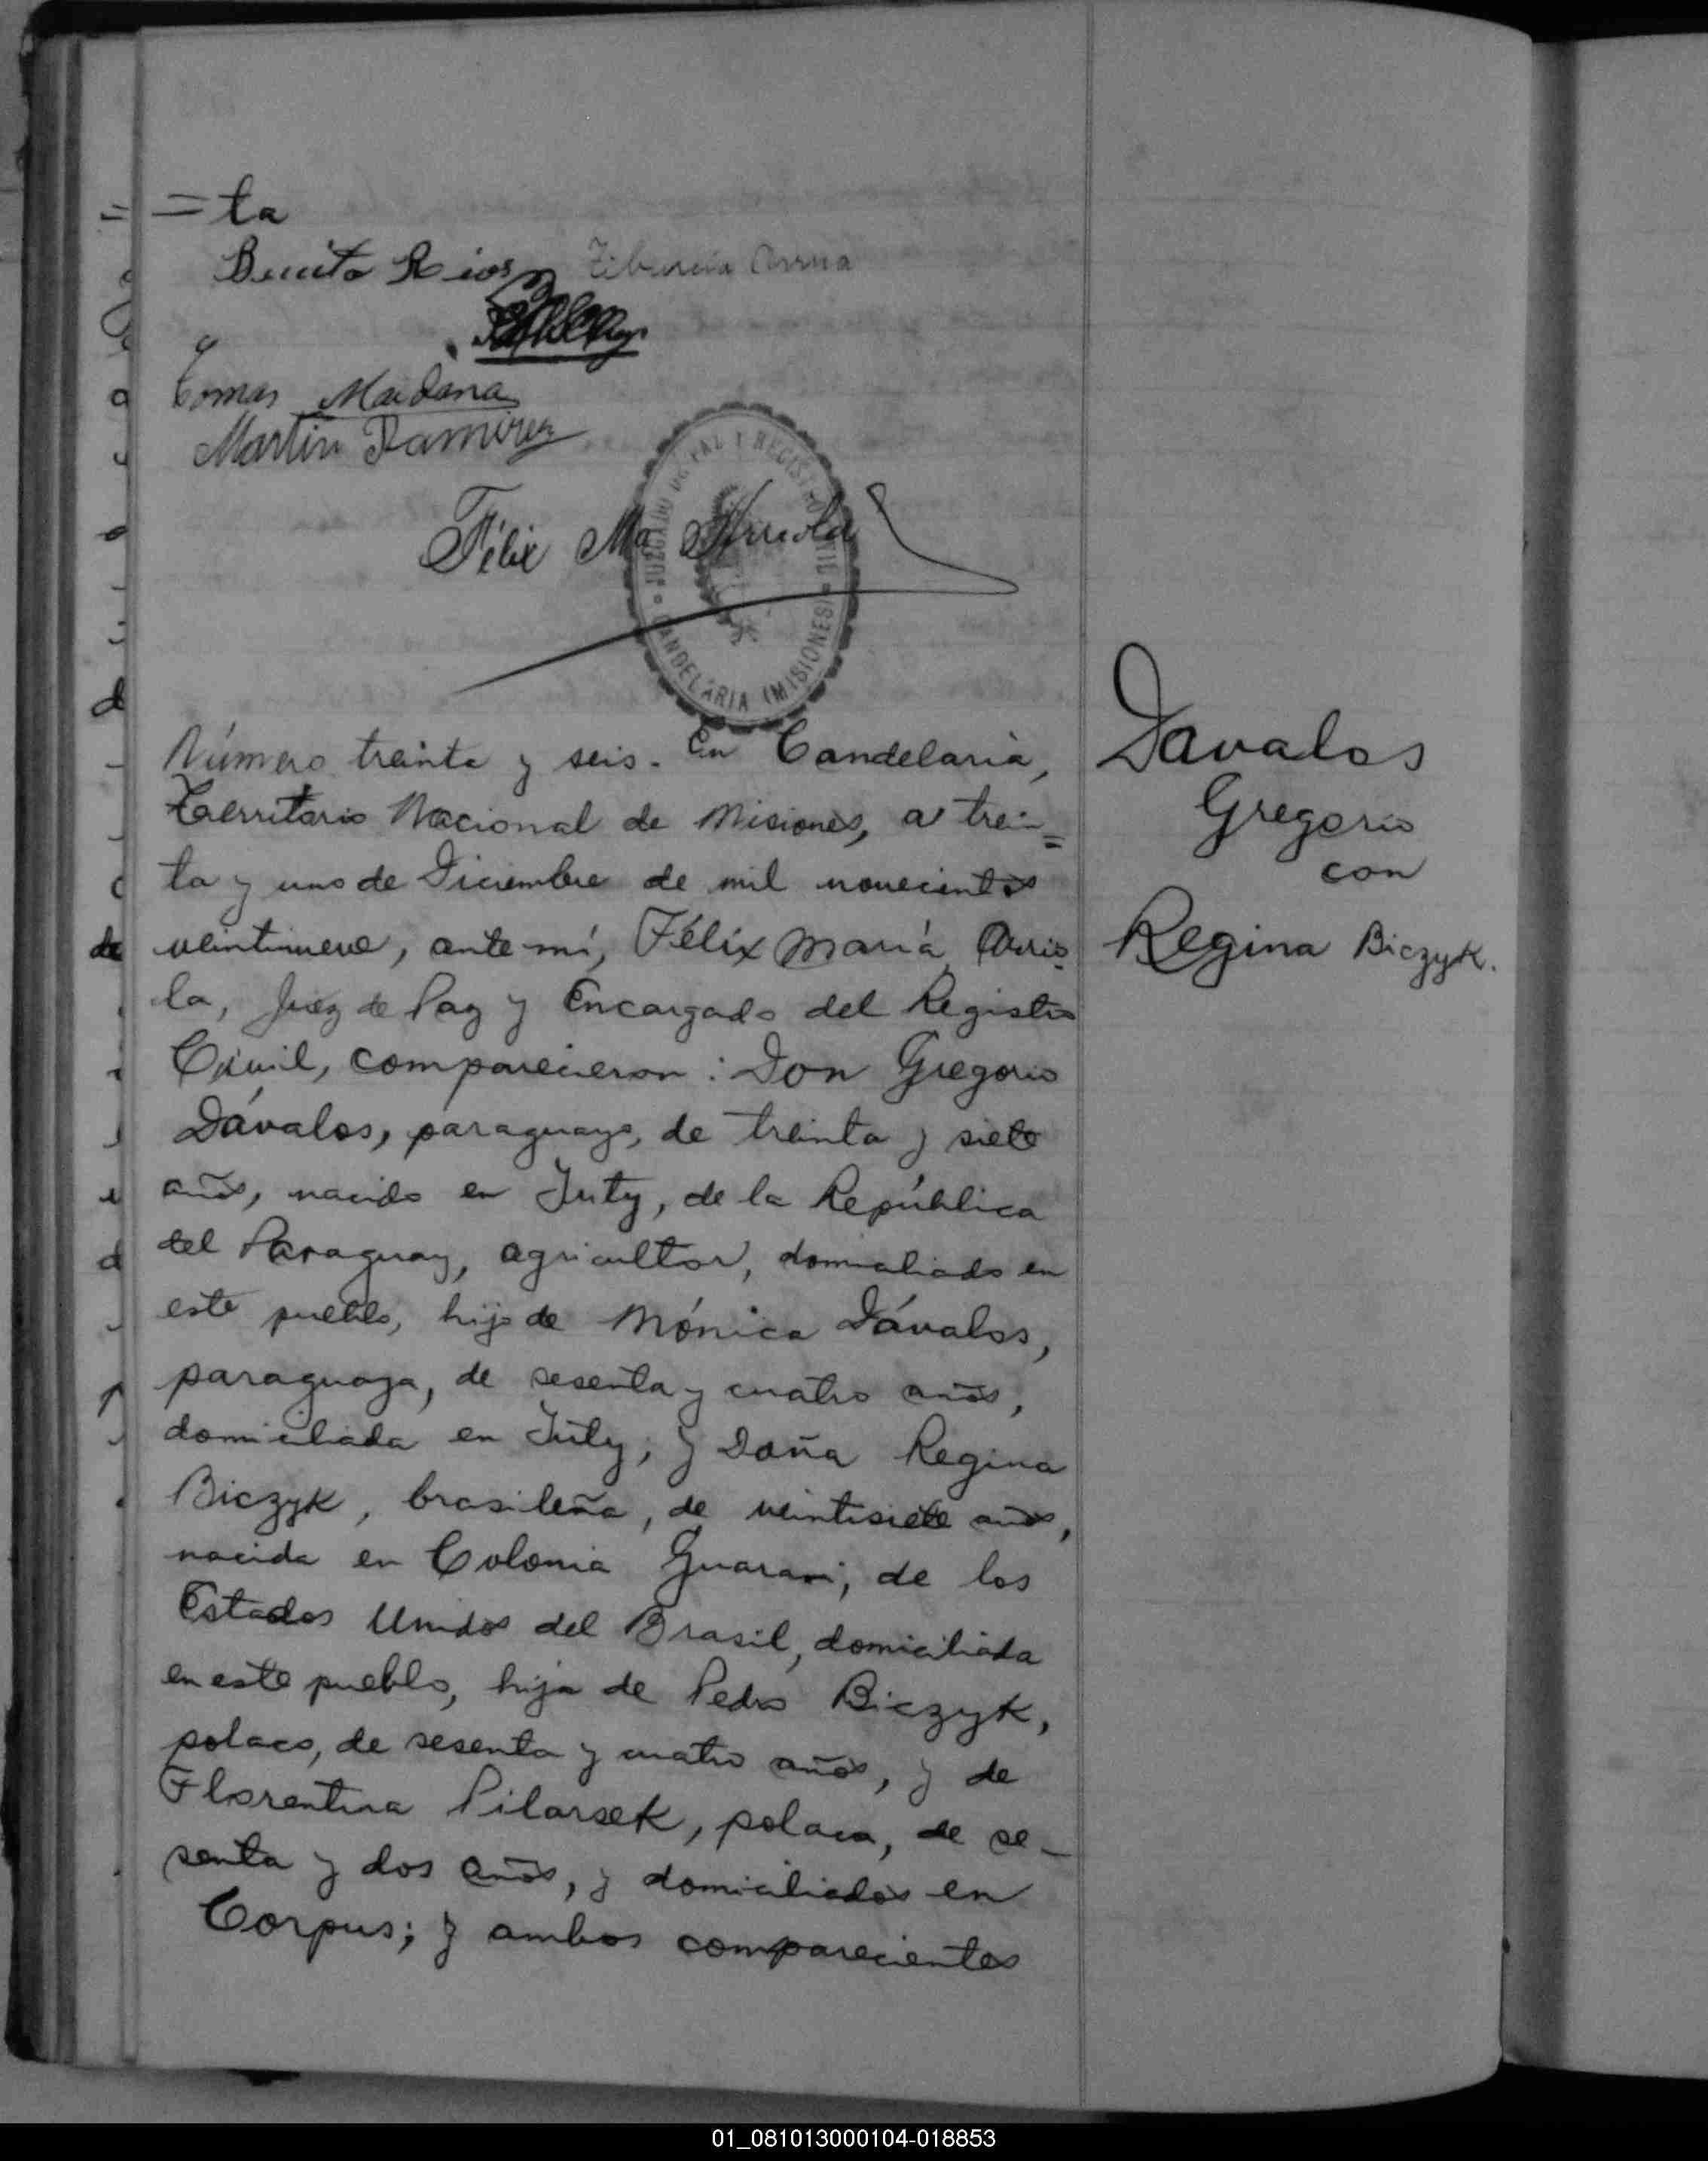 = ta
Benito Rios Tiburcia
Tomas Maidana
Martín Ramirez
Félix Ma Arriola
JUZGADO DE PAZ Y REGISTRO CIVIL
CANDELARIA (MISIONES)
Número treinta y seis. En Candelaria,
Territorio Nacional de Misiones, a trein=
ta y uno de Diciembre de mil novecientos
veintinueve, ante mí, Félix María Arrio-
la, Juez de Paz y Encargado del Registro
Civil, comparecieron: Don Gregorio
Dávalos, paraguayo, de treinta y siete
años, nacido en Yuty, de la República
del Paraguay, agricultor, domiciliado en
este pueblo, hijo de Mónica Dávalos,
paraguaya, de sesenta y cuatro años,
domiciliada en Yuty; y Doña Regina
Biczyk, brasileña, de veintisiete años,
nacida en Colonia Guarani, de los
Estados Unidos del Brasil, domiciliada
en este pueblo, hija de Pedro Biczyk,
polaco, de sesenta y cuatro años, y de
Florentina Pilarsek, polaca, de se-
senta y dos años, y domiciliados en
Corpus; y ambos comparecientes
Davalos
Gregorio
con
Regina Biczyk.
01_081013000104-018853